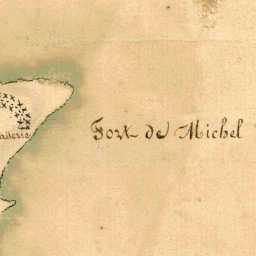 Fort de Michel